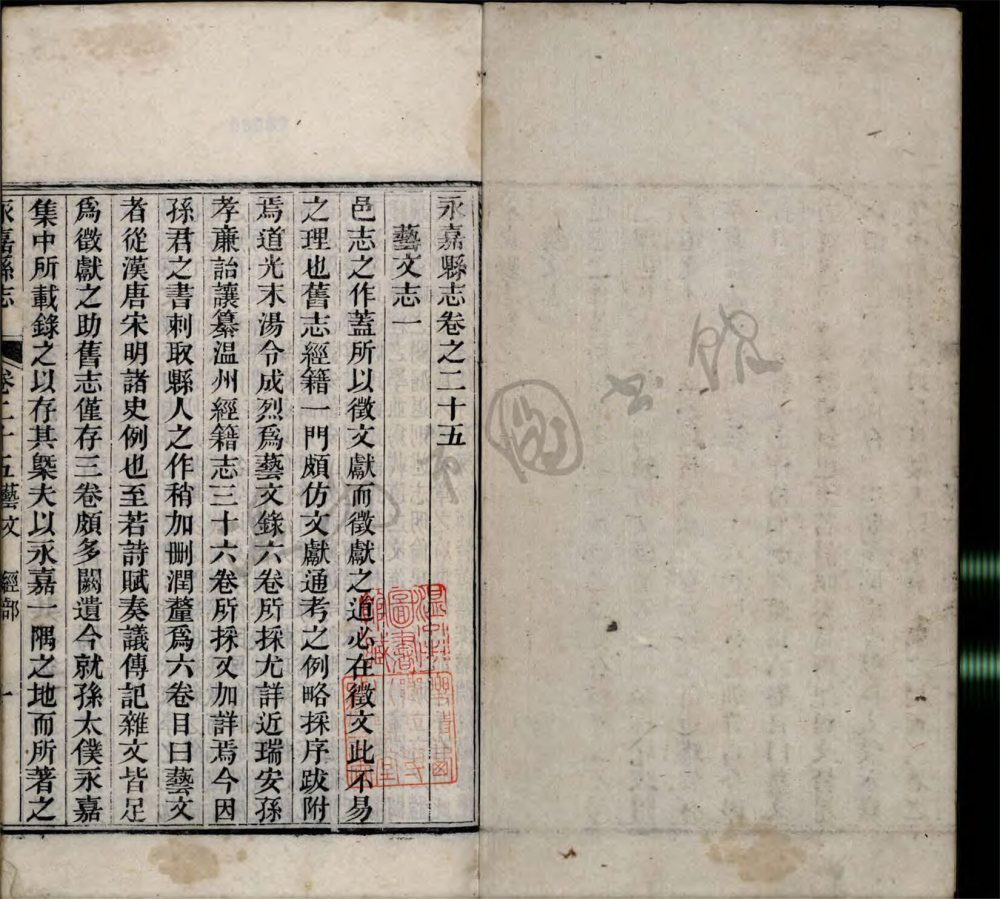 永嘉縣志卷之二十五
藝文志一
邑志之作蓋所以徵文獻而徵獻之道必在徵文此不易
之理也舊志經籍一門頗仿文獻通考之例略採序跋附
焉道光末湯令成烈爲藝文錄六卷所採尤詳近瑞安孫
孝廉詒讓纂温州經籍志三十六卷所採又加詳焉今因
孫君之書刺取縣人之作稍加刪潤釐爲六卷目曰藝文
者從漢唐宋明諸史例也至若詩賦奏議傳記雜文皆足
爲徵獻之助舊志僅存三卷頗多闕遺今就孫太僕永嘉
集中所載錄之以存其槩夫以永嘉一隅之地而所著之
永嘉縣志 卷二十五藝文 經部 一
温州
圖書
館藏